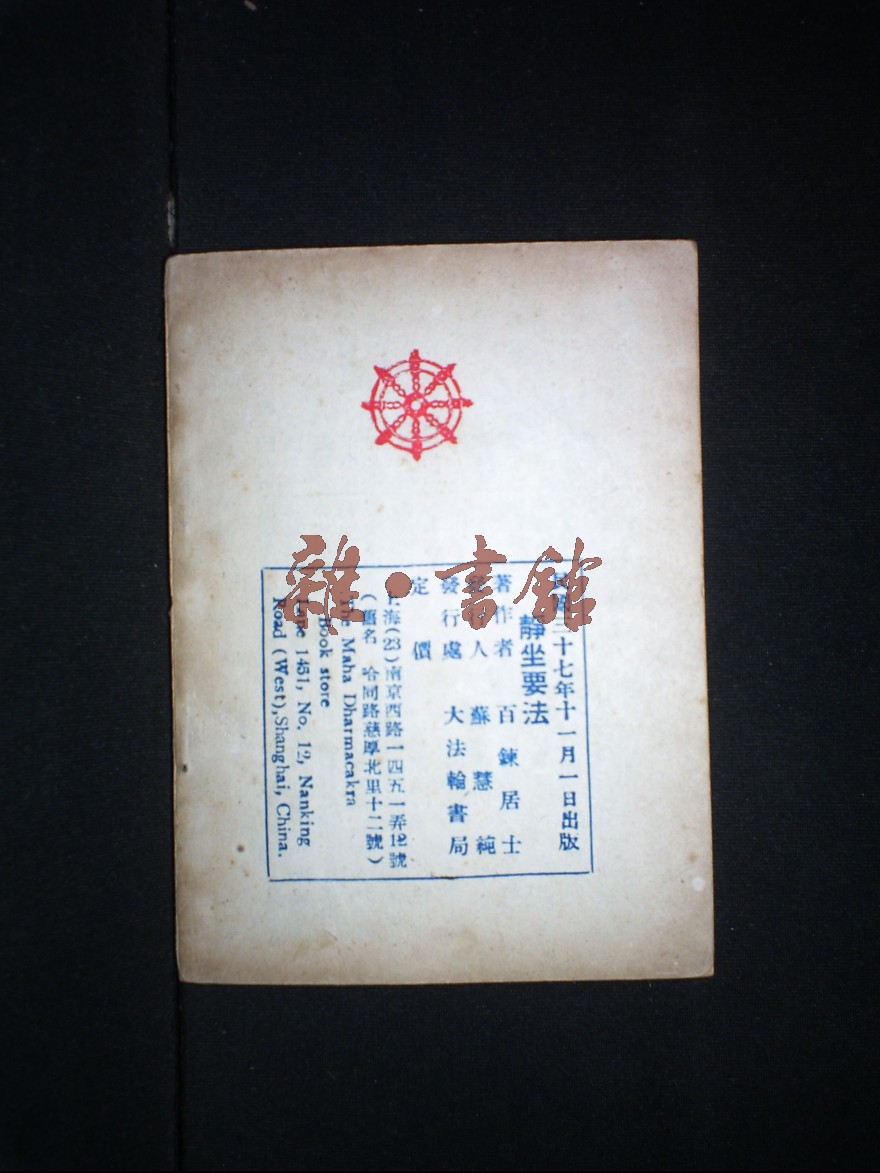 民國三十七年十一月一日出版
靜坐要法
著作者 百鍊居士
發行人 蘇慧範
發行處 大法輪書局
定價
上海(23)南京西路一四五一弄12號
(舊名 哈同路慈厚北里十二號)
The Maha Dharmacakra
Book store
Lane 1451, No. 12, Nanking
Road (West), Shanghai, China.
雜·書館